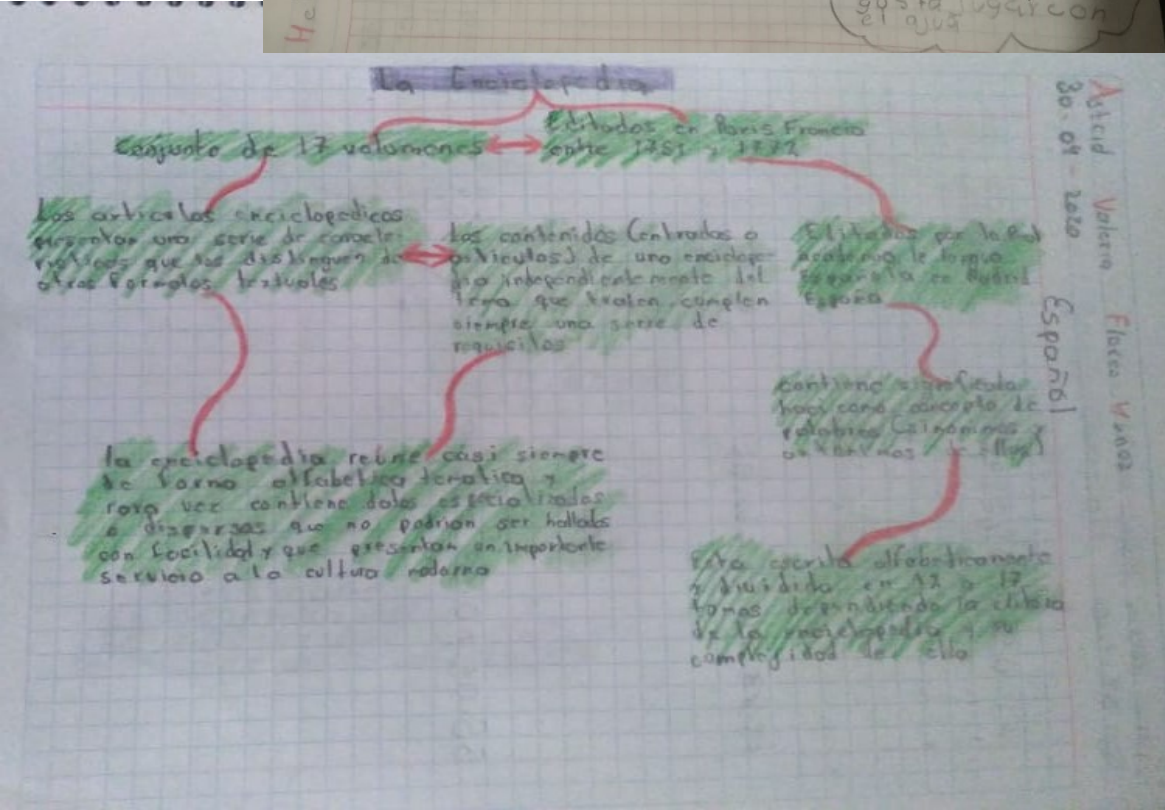 gusta jugar con
el agua
La Enciclopedia
Conjunto de 17 volumenes
Editados en Paris Francia
entre 1751 y 1772
Los articulos enciclopedicos
presentan una serie de caracte-
risticas que los distinguen de
otros formatos textuales
Los contenidos (entradas o
articulos) de una enciclope-
dia independientemente del
tema que traten cumplen
siempre una serie de
requicitos
Editados por la
academia
Española en Madrid
España
contiene significados
como concepto de
palabras (sinonimos y
antonimos
la enciclopedia reune casi siempre
de forma alfabetica tematica y
rara vez contiene datos especializados
o dispersas que no podrian ser hallados
con facilidad y que presentan un importante
servicio a la cultura moderna
Esta escrita alfabeticamente
y dividida en 12 a 17
tomos dependiendo la
de la enciclopedia y su
complegidad de ello
Astrid Valeria Flores
30-09-2020
Español